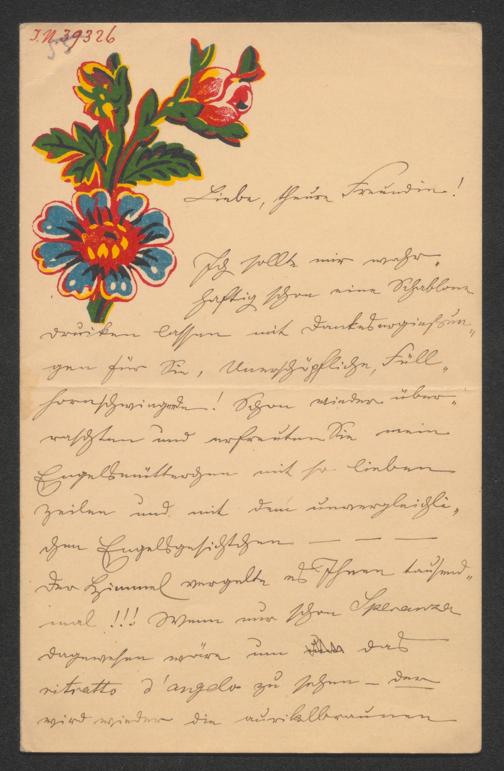 I.N. 39326
Liebe, theure Freundin!
Ich sollte mir wahr-
haftig schon eine Schablone
drucken lassen mit Dankes
gen für Sie, Unerschöpfliche, Füll-
hornschwingende! Schon wieder über-
raschten und erfreuten Sie mein
Engelsmütterchen mit so lieben
Zeilen und mit dem unvergleichli-
chen Engelsgesichtchen — — —
Der Himmel vergelte es Ihnen tausend-
mal!!! Wenn nur schon Speranza
dagewesen wäre um das
ritratto d'angelo zu sehen – der
wird wieder die aurikelbraunen